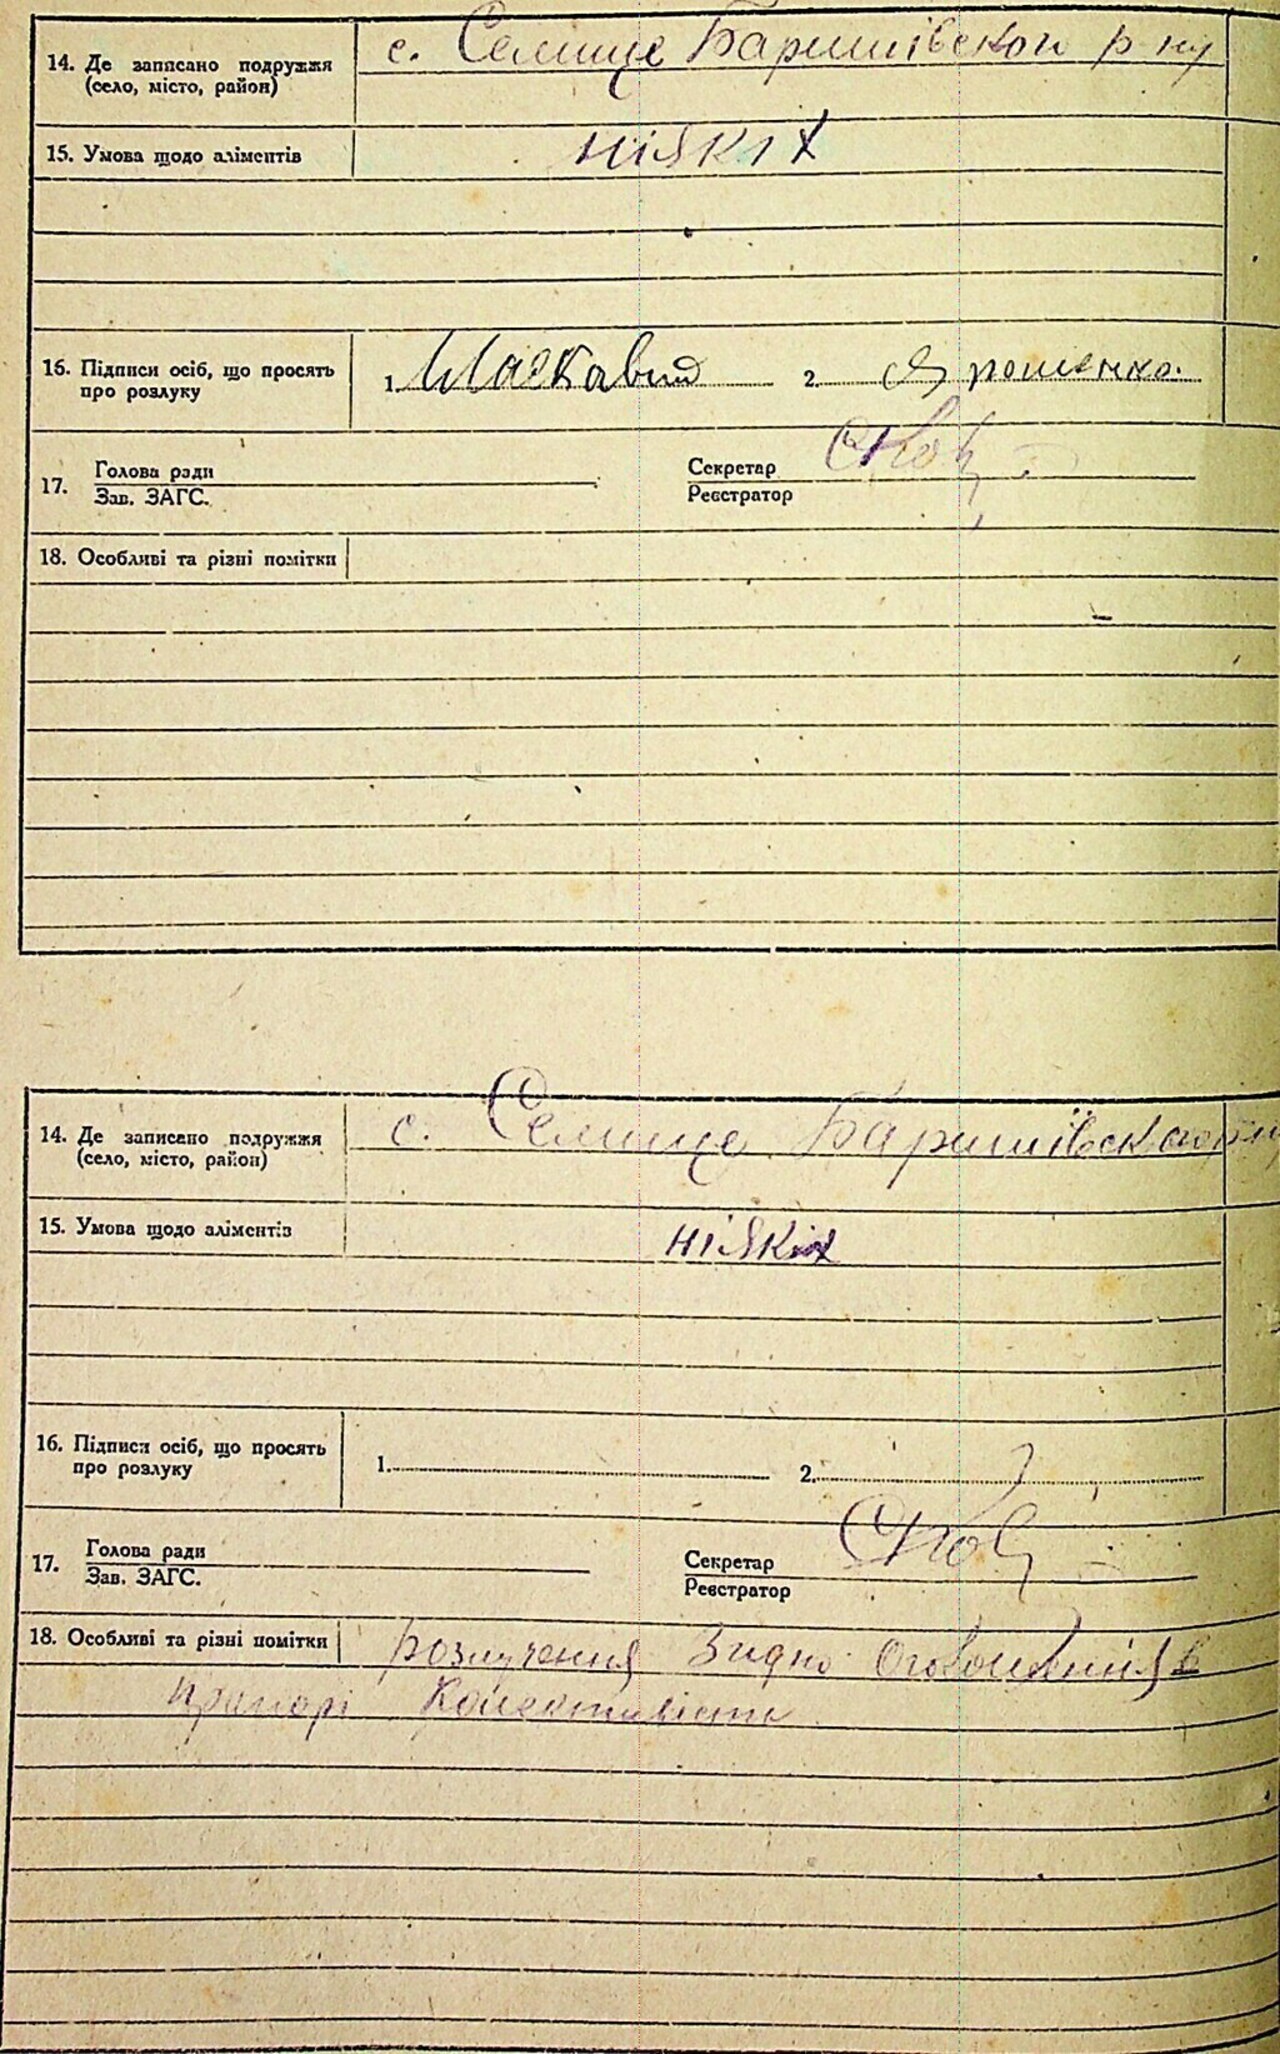 14. Де записано подружжя с. Селище Баришівского р-ну
(село, місто, район)
15. Умова щодо аліментів ніякіх
16. Підписи осіб, що просять 1. 2. Ярошенко.
про розлуку
17. Голова ради Секретар
Зав. ЗАГС. Реєстратор
18. Особливі та різні помітки
14. Де записано подружжя с. Селище Баришівск
(село, місто, район)
15. Умова щодо аліментів ніякіх
16. Підписи осіб, що просять 1. 2.
про розлуку
17. Голова ради Секретар
Зав. ЗАГС. Реєстратор
18. Особливі та різні помітки розлучення Згидно Оговошення в
прапорі Колективіста